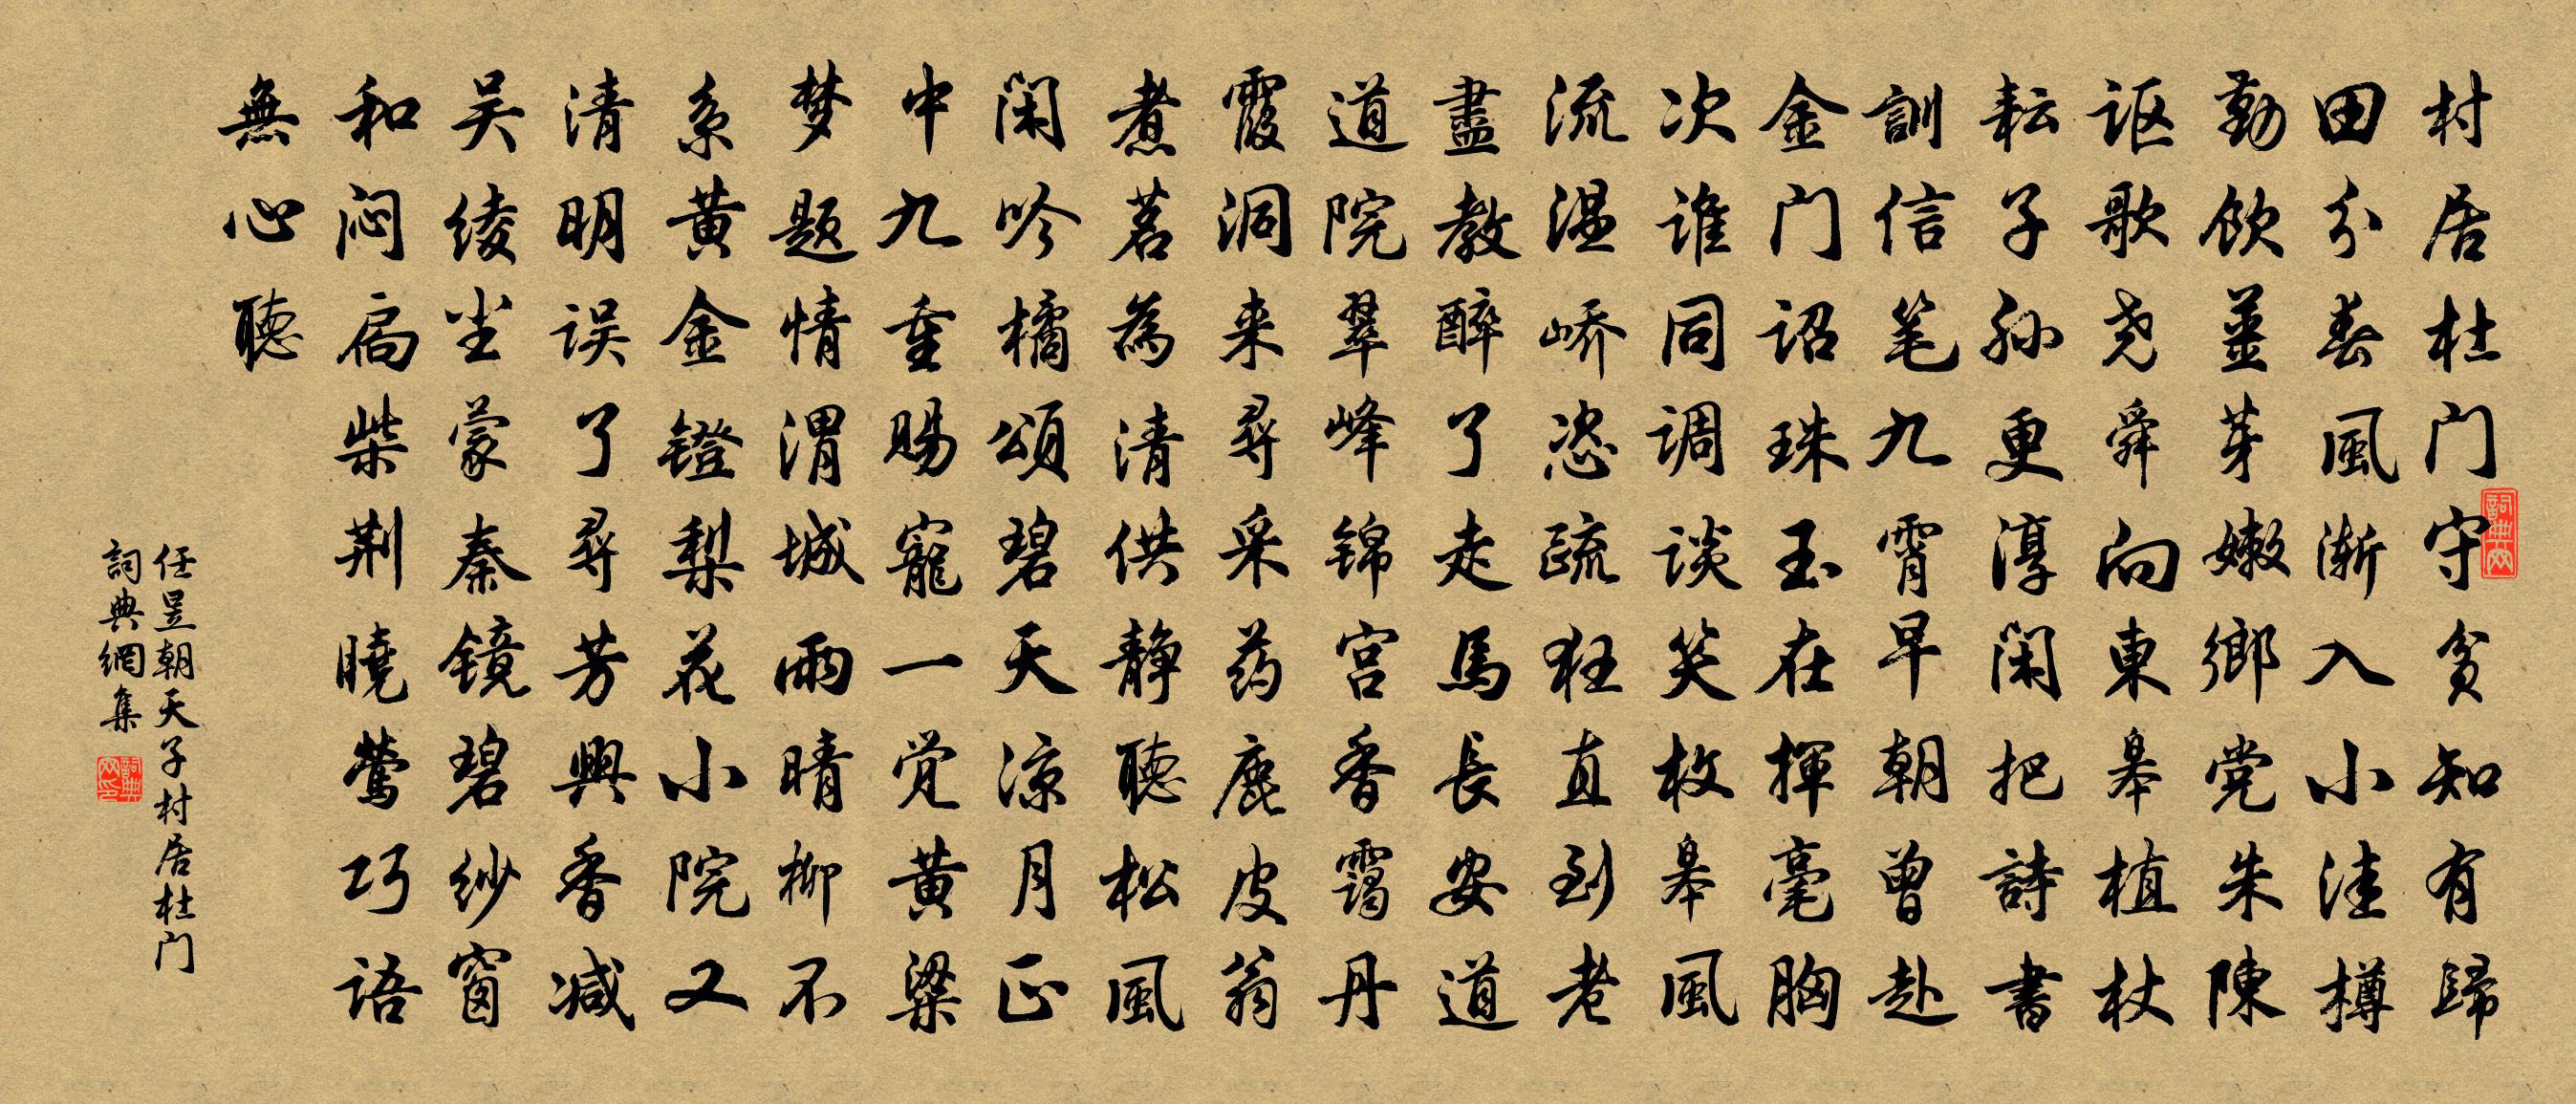 村居杜门守贫知有歸
田分春風渐入小洼樽
勤飲薑芽嫩鄉党朱陳
讴歌尧舜向東皋植杖
耘子孙更淳闲把詩書
訓信笔九霄早朝曾赴
金门诏珠玉在揮毫胸
次谁同调谈笑枚皋風
流温峤恣疏狂直到老
盡教醉了走馬長安道
道院翠峰锦宫香靄丹
霞洞来尋采药鹿皮翁
煮茗為清供静聽松風
闲吟橘頌碧天凉月正
中九重赐寵一觉黄粱
梦题情渭城雨晴柳不
系黄金镫梨花小院又
清明误了尋芳興香减
吴绫尘蒙秦镜碧纱窗
和闷扃柴荆曉莺巧语
無心聽
任昱朝天子村居杜门
詞典網集
詞典网
詞典网印